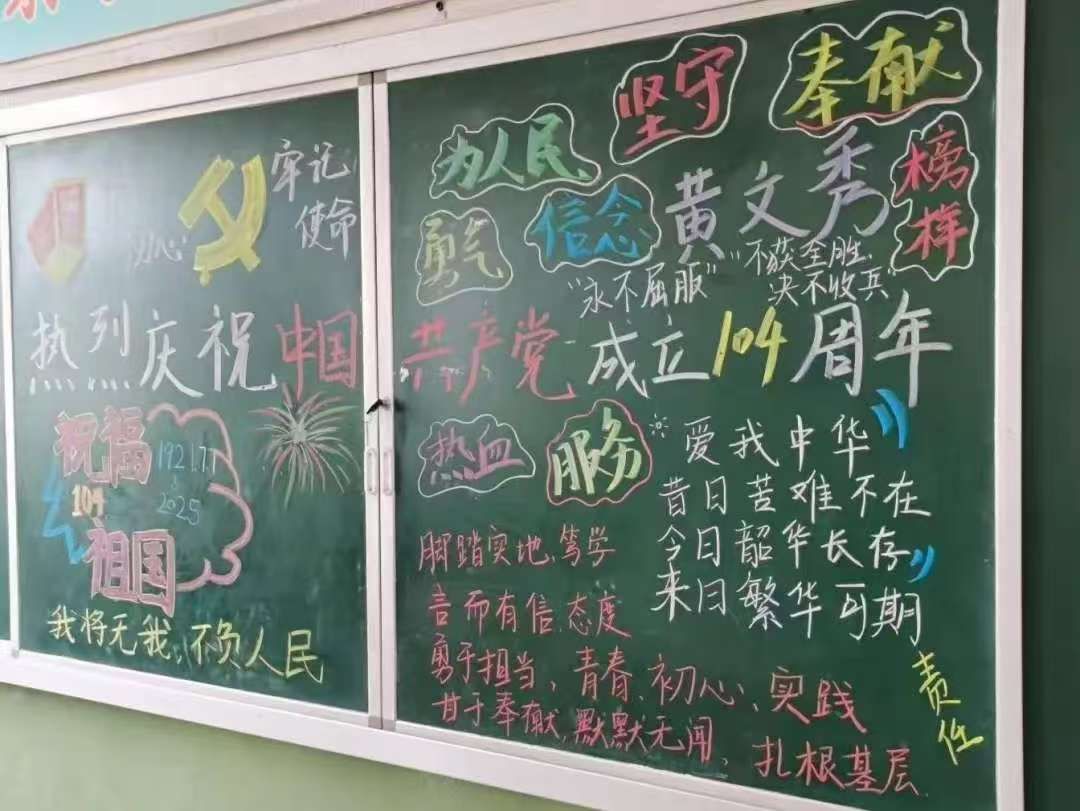 牢记
使命
初心
热烈庆祝中国
祝福
1921.7.1
104
2025
祖国
我将无我,不负人民
坚守
奉献
为人民
勇气
信念
黄文秀
榜样
“永不屈服”
“不获全胜,
决不收兵”
共产党成立104周年
热血
服务
爱我中华
昔日苦难不在
今日韶华长存
来日繁华可期
脚踏实地、笃学
言而有信、态度
勇于担当、青春、初心、实践
甘于奉献、默默无闻、扎根基层
责任